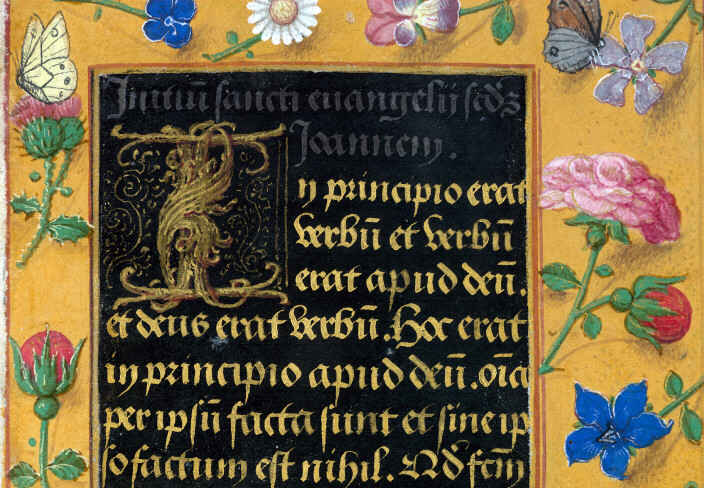 Initiū sancti euangelij scdȝ
Joannem.
In principio erat
verbū et verbū
erat apud deū.
et deus erat verbū. Hoc erat
in principio apud deū. oīa
per ipsū facta sunt et sine ip
so factum est nihil. Qd fcm̄